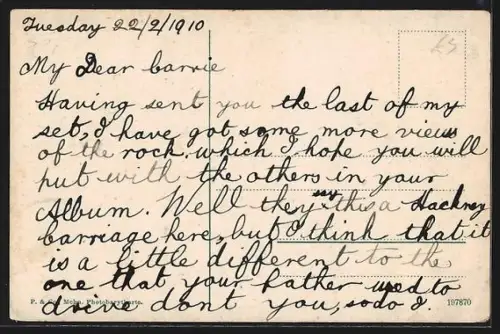 Tuesday 22/2/1910
£5
My Dear Carrie
Having sent you the last of my
set, I have got some more views
of the rock, which I hope you will
put with the others in your
Album. Well they say this a Hackney
Carriage here, but I think that it
is a little different to the
one that your Father used to
drive dont you, so do I.
P. & Co.
197870